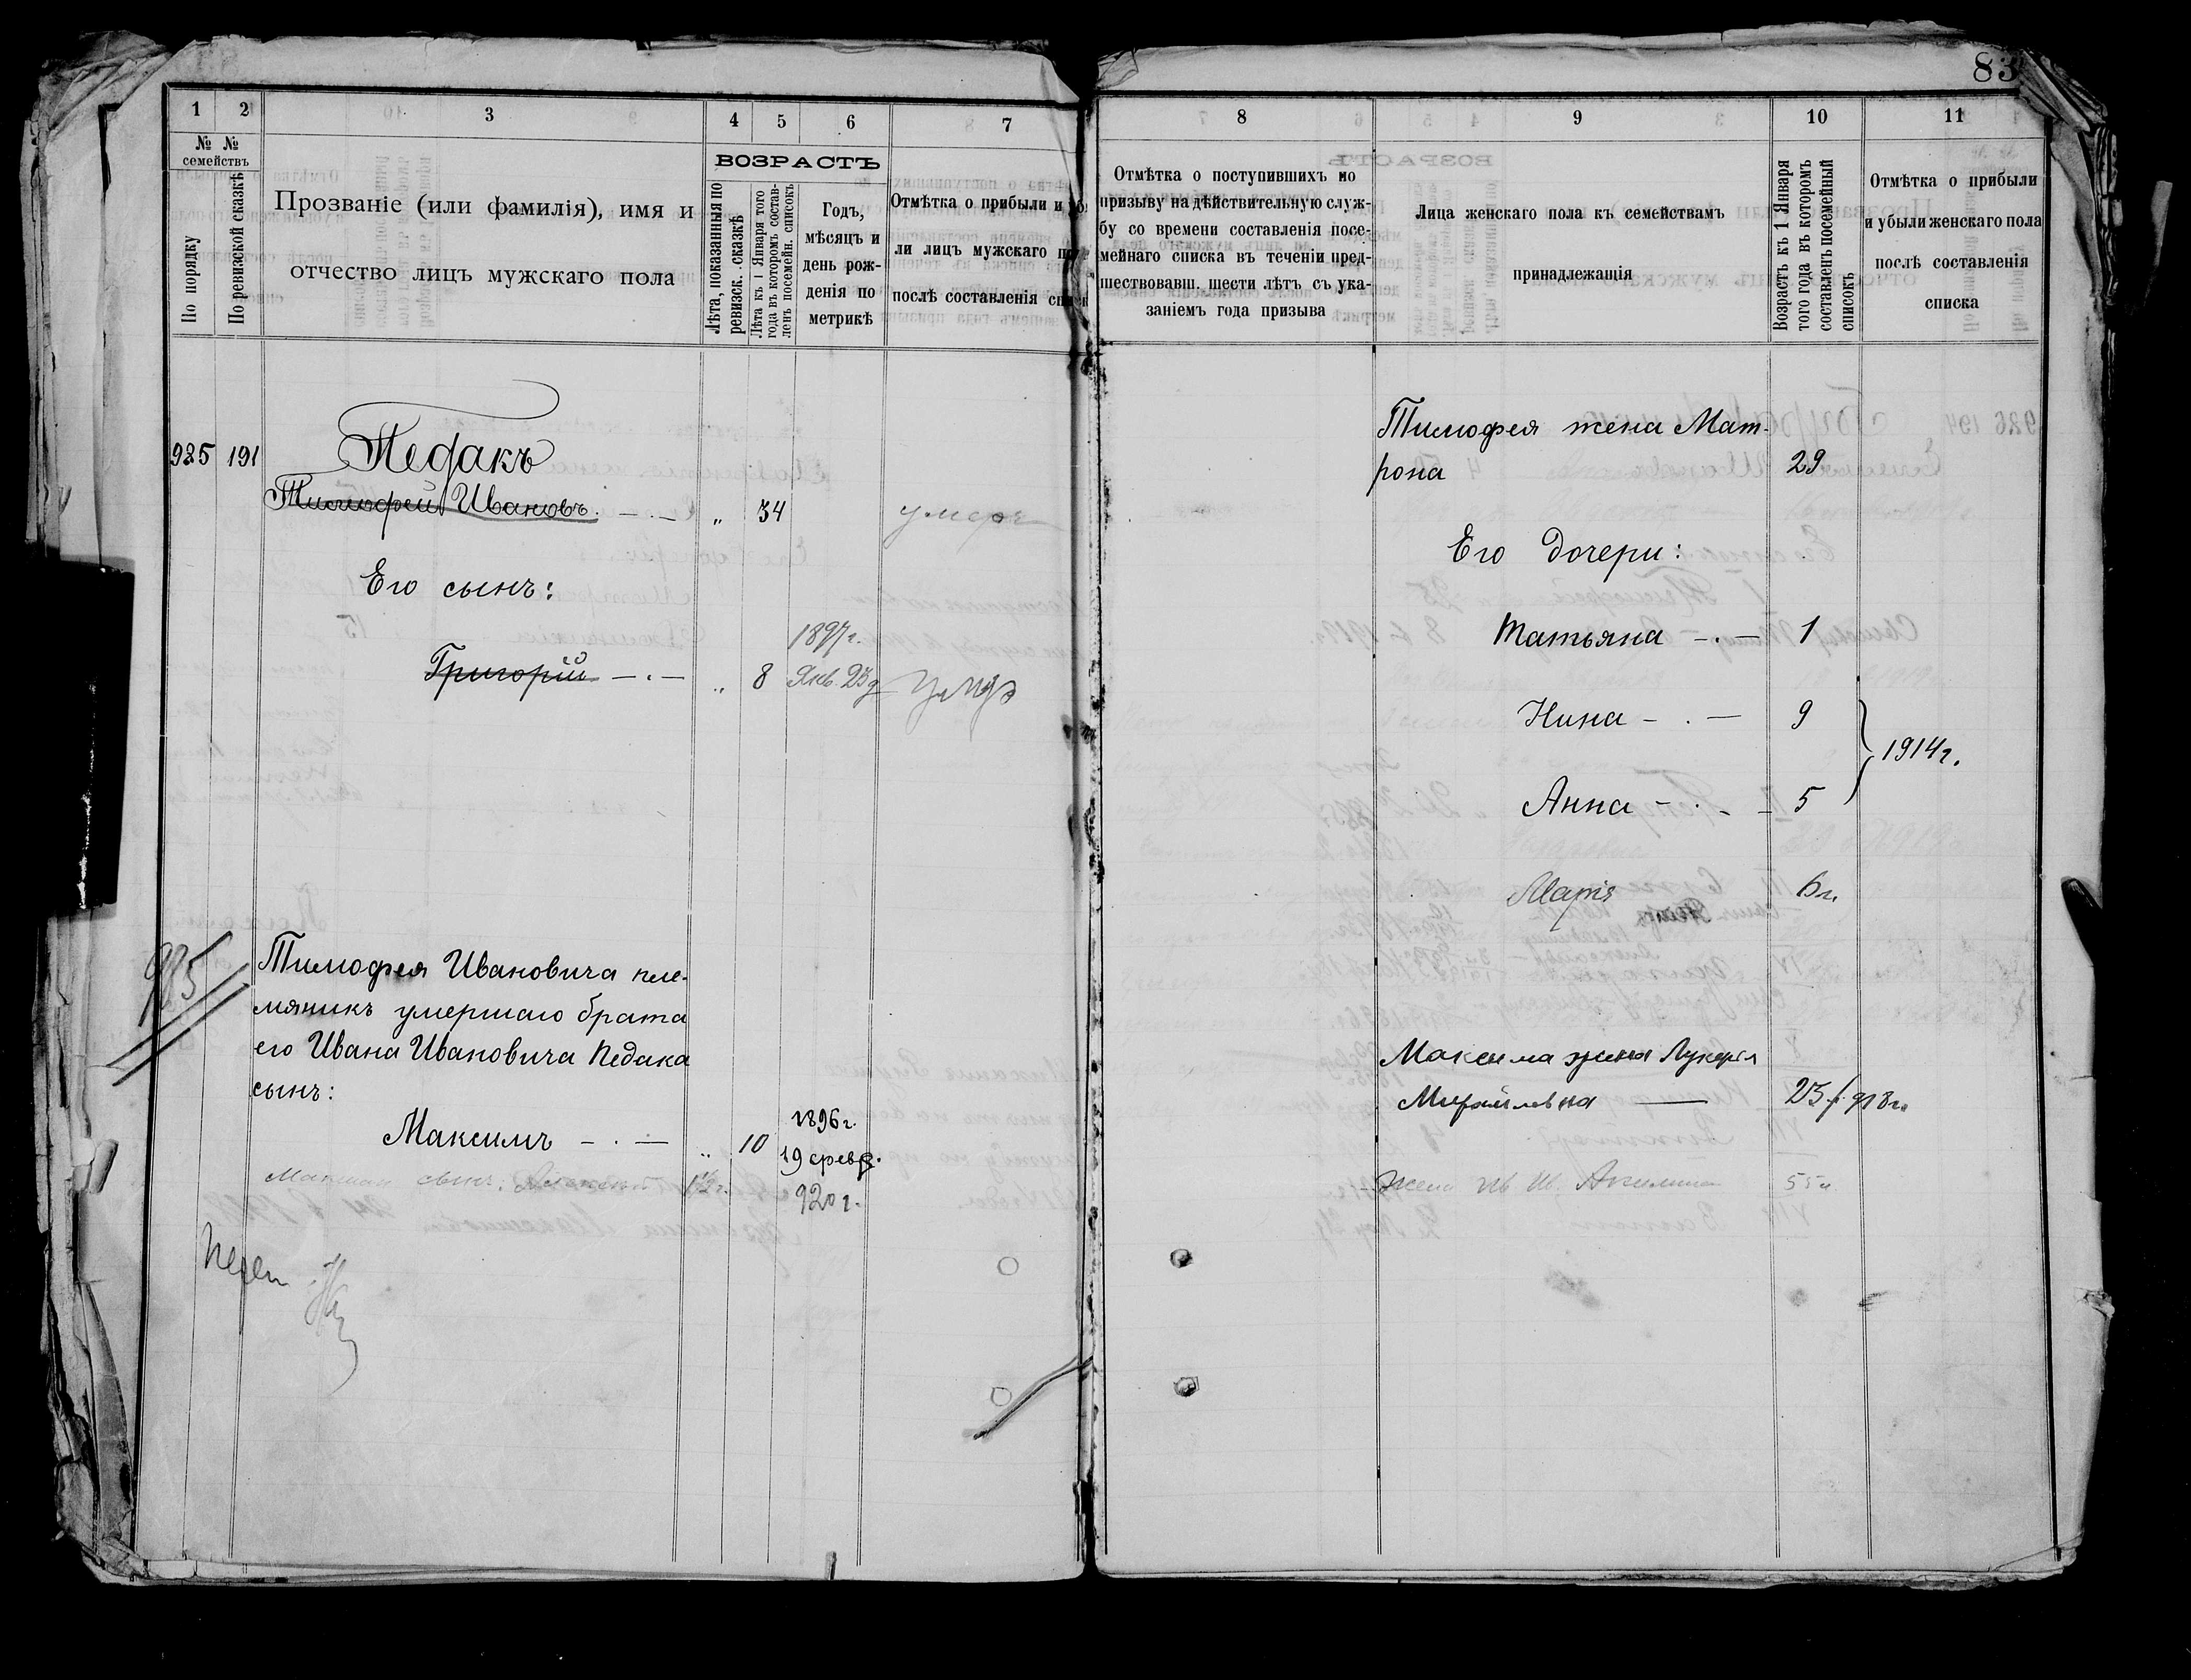 83
1 2 3 4 5 6 7
№ №
семействъ
По порядку
По ревизской сказкѣ
Прозваніе (или фамилія), имя и
отчество лицъ мужскаго пола
ВОЗРАСТЪ
Лѣта, показанныя по
ревизск. сказкѣ
Лѣта къ 1 Января того
года въ которомъ состав-
ленъ посемейн. списокъ
Годъ,
мѣсяцъ и
день рож-
денія по
метрикѣ
Отмѣтка о прибыли и
ли лицъ мужскаго
послѣ составленія
925 191 Педакъ
Тимофей Ивановъ. „ 34 умеръ
Его сынъ:
1897г.
Григорій „ 8 Янв. 23
Тимофея Ивановича пле-
925
мяникъ умершаго брата
его Ивана Ивановича Педака
сынъ:
1896г.
Максимъ „ 10 19 февр.
сынъ: 920г.
8 9 10 11
Отмѣтка о поступившихъ по
призыву на дѣйствительную служ-
бу со времени составленія посе-
мейнаго списка въ теченіи пред-
шествовавш. шести лѣтъ съ ука-
заніемъ года призыва
Лица женскаго пола къ семействамъ
принадлежащія
Возрастъ къ 1 Января
того года въ которомъ
составленъ посемейный
списокъ
Отмѣтка о прибыли
и убыли женскаго пола
послѣ составленія
списка
Тимофея жена Мат-
рона 29
Его дочери:
Татьяна 1
Нина 9
1914г.
Анна 5
Марія 6л.
Максима жена Лукерія
Михайловна 25 918г.
жена Ив. Ив. Акилина 55л.